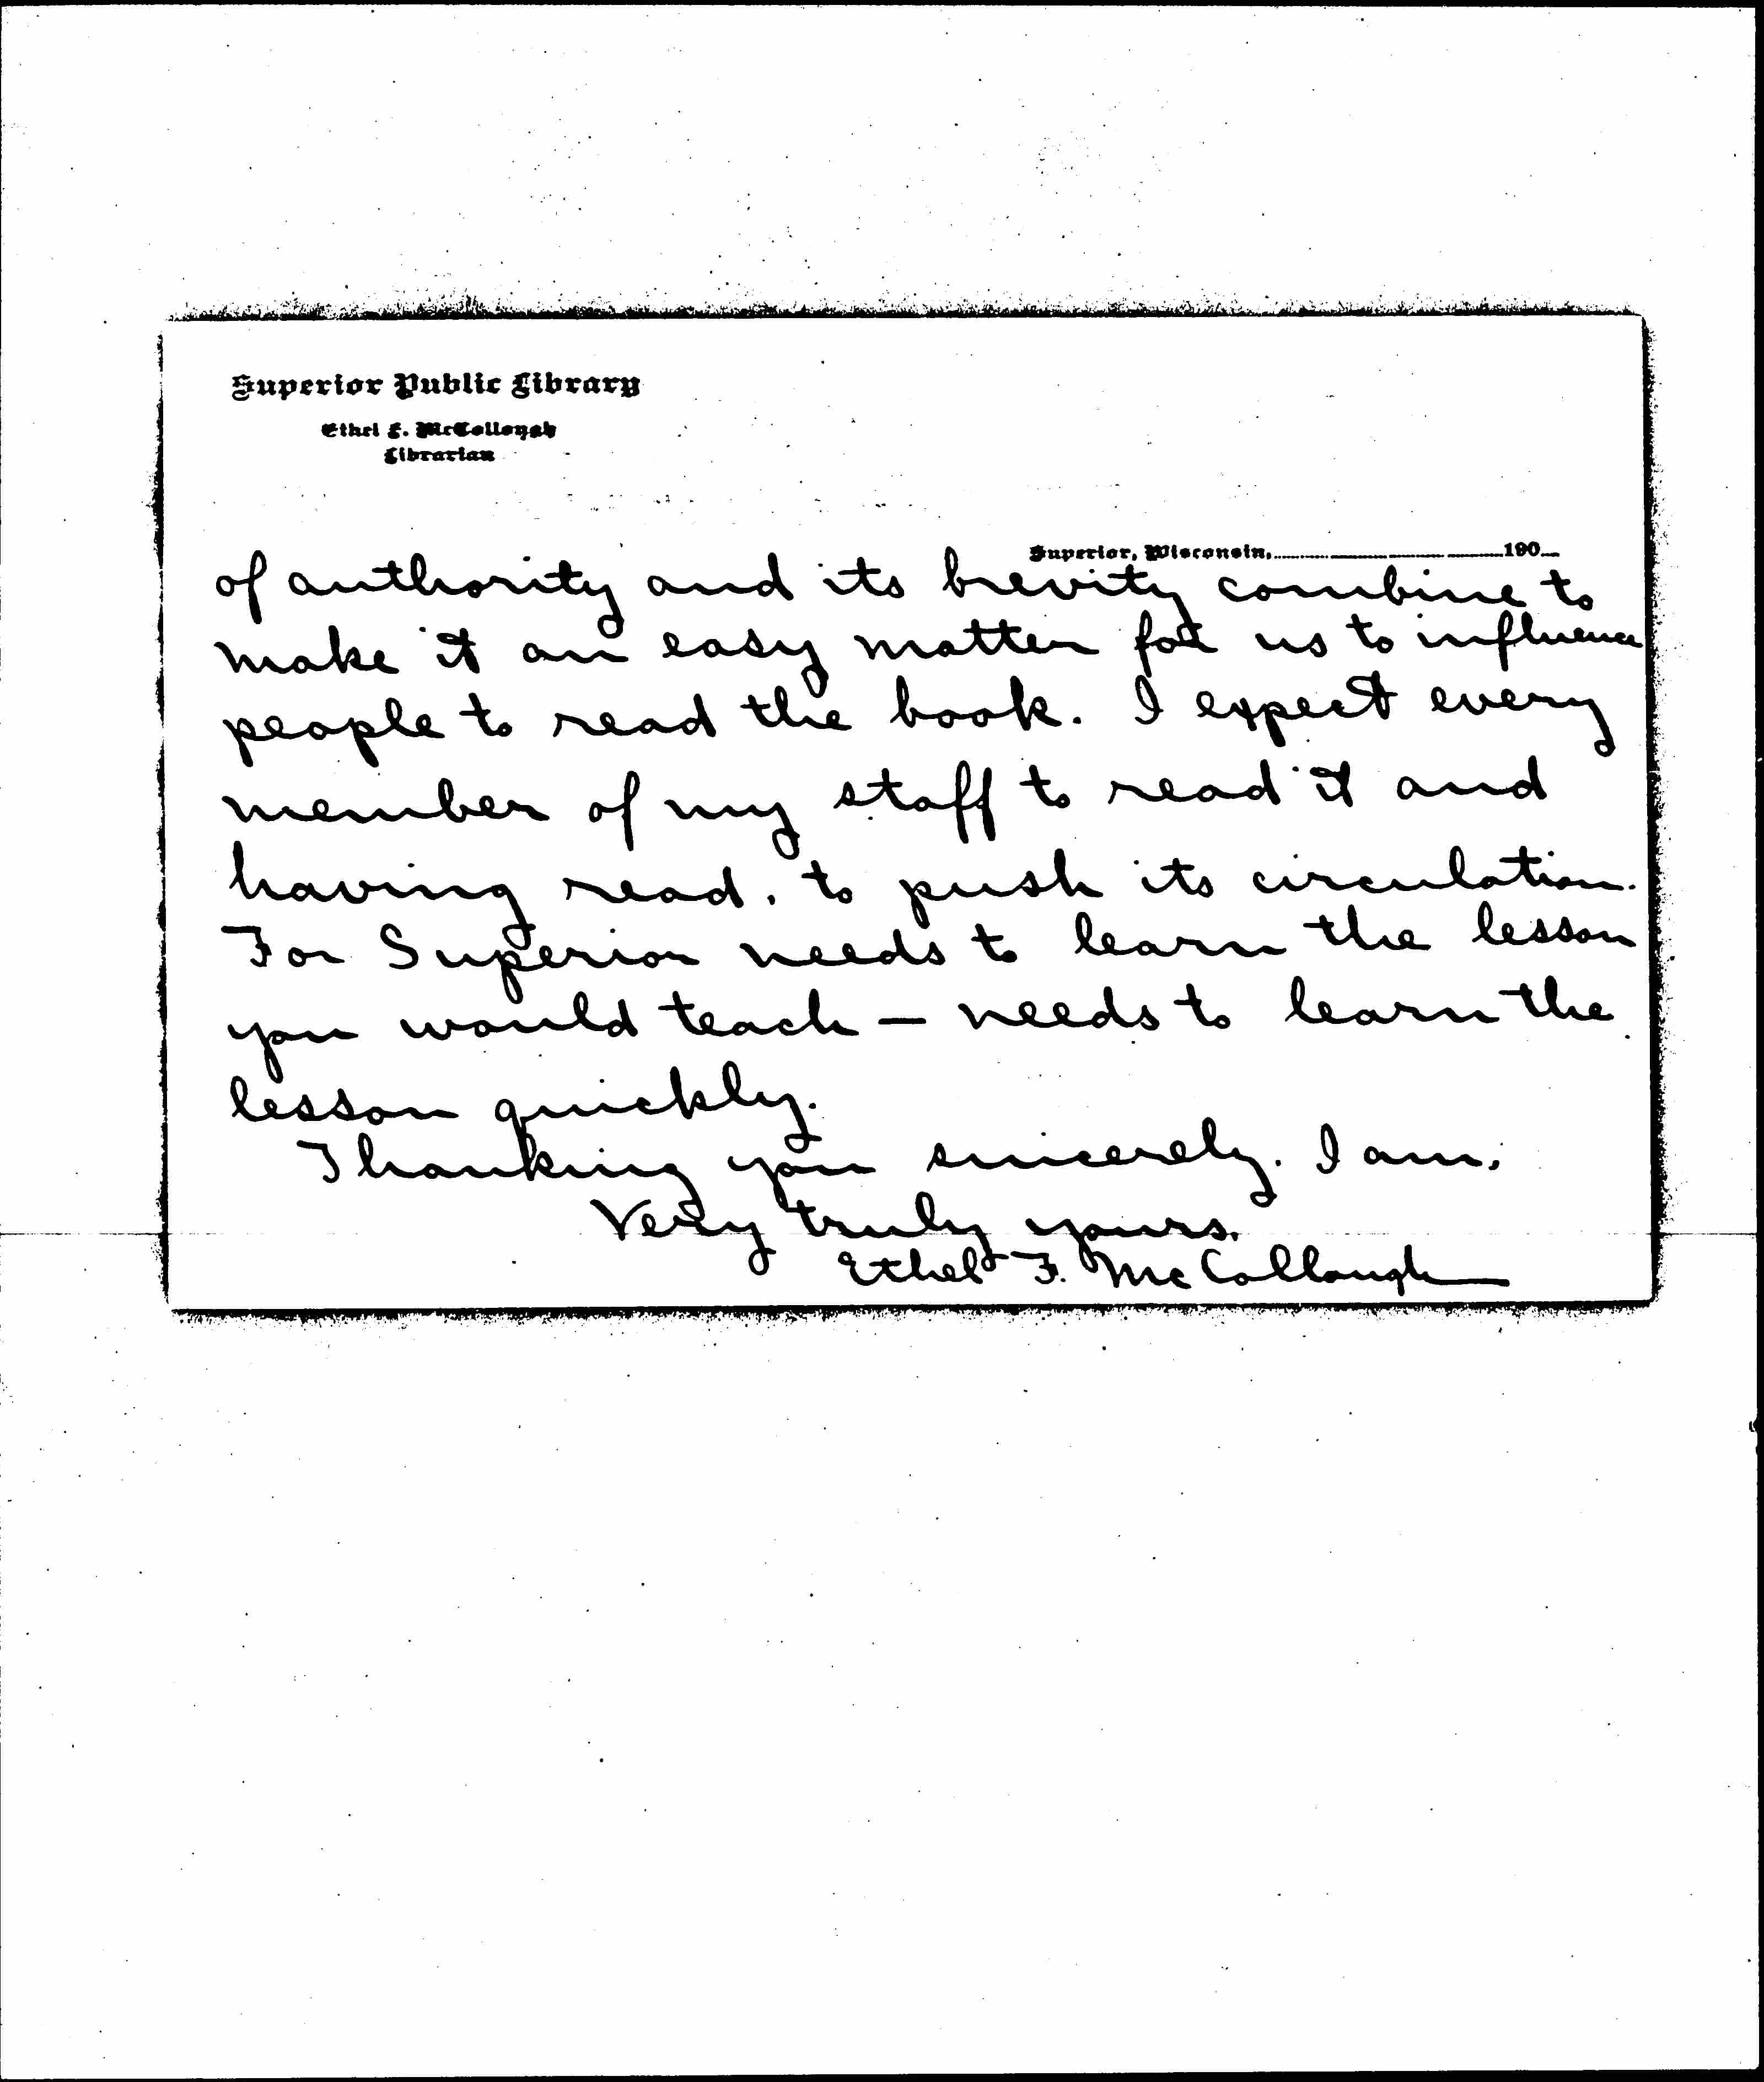 Superior Public Library
Ethel F. McCollough
Librarian
Superior, Wisconsin, 190
of authority and its brevity combine to
make it an easy matter for us to influence
people to read the book. I expect every
member of my staff to read it and
having read, to push its circulation.
For Superior needs to learn the lesson
you would teach — needs to learn the
lesson quickly.
Thanking you sincerely. I am,
Very truly yours.
Ethel F. McCollough